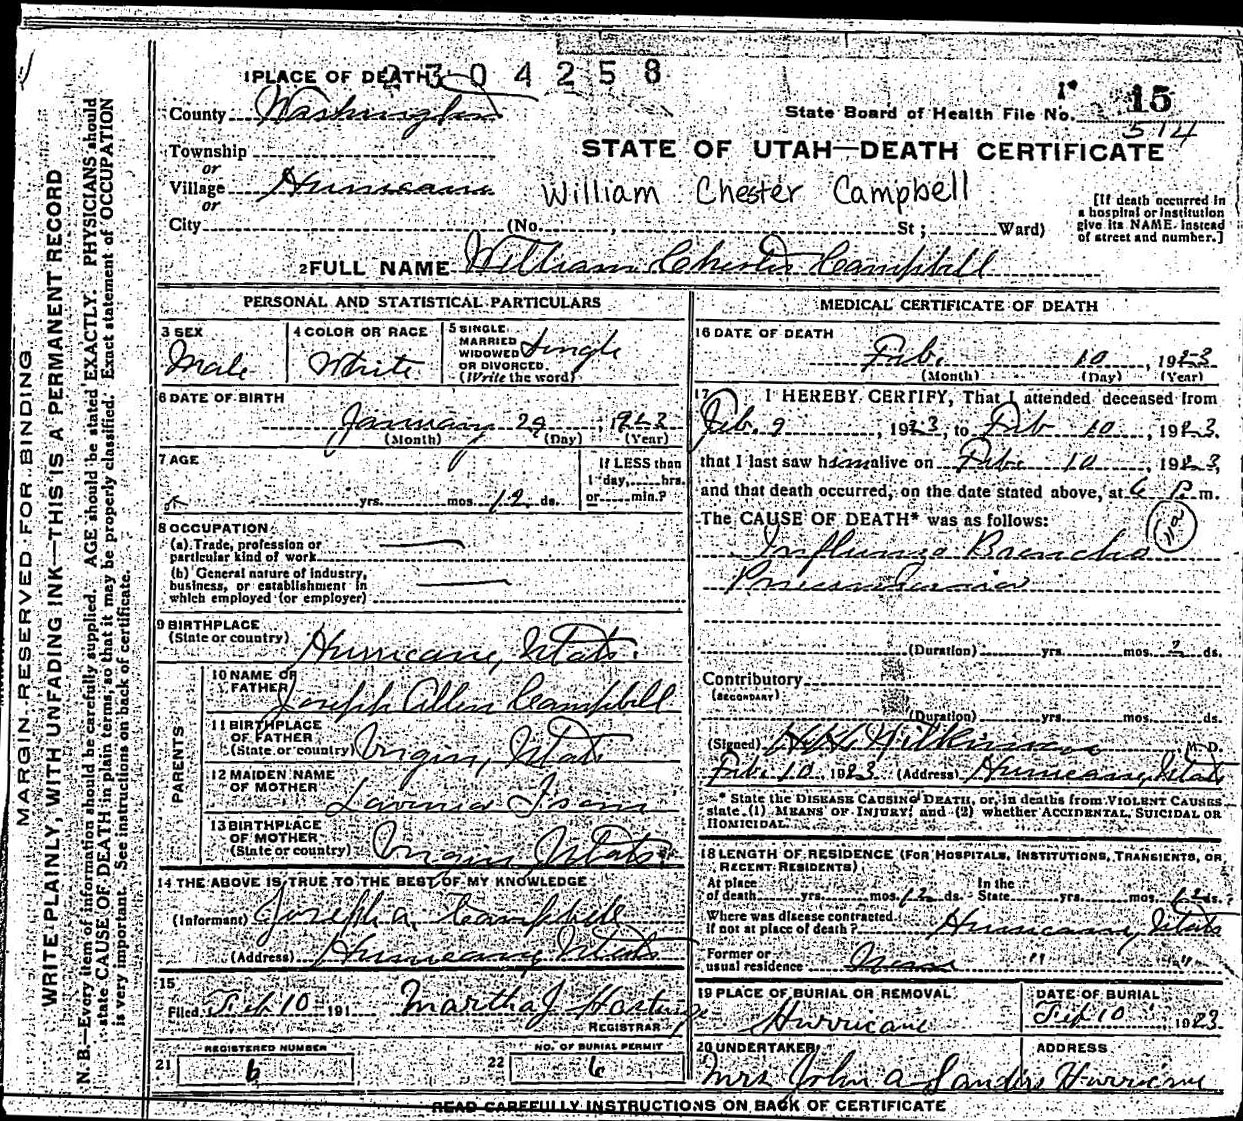 1 PLACE OF DEATH 2304258
County Washington
State Board of Health File No. 15
514
Township
or
Village Hurricane
or
City (No. , St ; Ward)
STATE OF UTAH—DEATH CERTIFICATE
William Chester Campbell
[If death occurred in
a hospital or institution
give its NAME instead
of street and number.]
2 FULL NAME William Chester Campbell
PERSONAL AND STATISTICAL PARTICULARS
3 SEX
Male
4 COLOR OR RACE
White
5 SINGLE
MARRIED
WIDOWED
OR DIVORCED
(Write the word)
Single
6 DATE OF BIRTH
January 29, 1923
(Month) (Day) (Year)
7 AGE
yrs. mos. 12 ds.
If LESS than
1 day, hrs.
or min.?
8 OCCUPATION
(a) Trade, profession or
particular kind of work
(b) General nature of industry,
business, or establishment in
which employed (or employer)
9 BIRTHPLACE
(State or country)
Hurricane, Utah.
PARENTS
10 NAME OF
FATHER
Joseph Allen Campbell
11 BIRTHPLACE
OF FATHER
(State or country)
Virgin, Utah
12 MAIDEN NAME
OF MOTHER
Lavinia Isom
13 BIRTHPLACE
OF MOTHER
(State or country)
Virgin, Utah
14 THE ABOVE IS TRUE TO THE BEST OF MY KNOWLEDGE
(Informant) Joseph A. Campbell
(Address) Hurricane, Utah
15
Filed Feb 10 - 191 Martha J
REGISTRAR
REGISTERED NUMBER
21 6
NO. OF BURIAL PERMIT
22 6
MEDICAL CERTIFICATE OF DEATH
16 DATE OF DEATH
Feb. 10, 1923
(Month) (Day) (Year)
17 I HEREBY CERTIFY, That I attended deceased from
Feb. 9, 1923, to Feb 10, 1923.
that I last saw him alive on Feb. 10, 1923,
and that death occurred, on the date stated above, at 6 P. m.
The CAUSE OF DEATH* was as follows:
11a
Influenza Broncho
Pneumonia
(Duration) yrs. mos. 2 ds.
Contributory
(SECONDARY)
(Duration) yrs. mos. ds.
(Signed) Wilkinson M. D.
Feb. 10 1923 (Address) Hurricane, Utah
* State the DISEASE CAUSING DEATH, or, in deaths from VIOLENT CAUSES
state (1) MEANS OF INJURY; and (2) whether ACCIDENTAL, SUICIDAL OR
HOMICIDAL.
18 LENGTH OF RESIDENCE (FOR HOSPITALS, INSTITUTIONS, TRANSIENTS, OR
RECENT RESIDENTS)
At place
of death yrs. mos. 12 ds.
In the
State yrs. mos. 12 ds.?
Where was disease contracted
if not at place of death? Hurricane, Utah
Former or
usual residence " "
19 PLACE OF BURIAL OR REMOVAL
Hurricane
DATE OF BURIAL
Feb 10 1923
20 UNDERTAKER
Mrs John A Sanders
ADDRESS
Hurricane
READ CAREFULLY INSTRUCTIONS ON BACK OF CERTIFICATE
MARGIN RESERVED FOR BINDING
WRITE PLAINLY, WITH UNFADING INK—THIS IS A PERMANENT RECORD
N. B.—Every item of information should be carefully supplied. AGE should be stated EXACTLY. PHYSICIANS should
state CAUSE OF DEATH in plain terms, so that it may be properly classified. Exact statement of OCCUPATION
is very important. See instructions on back of certificate.